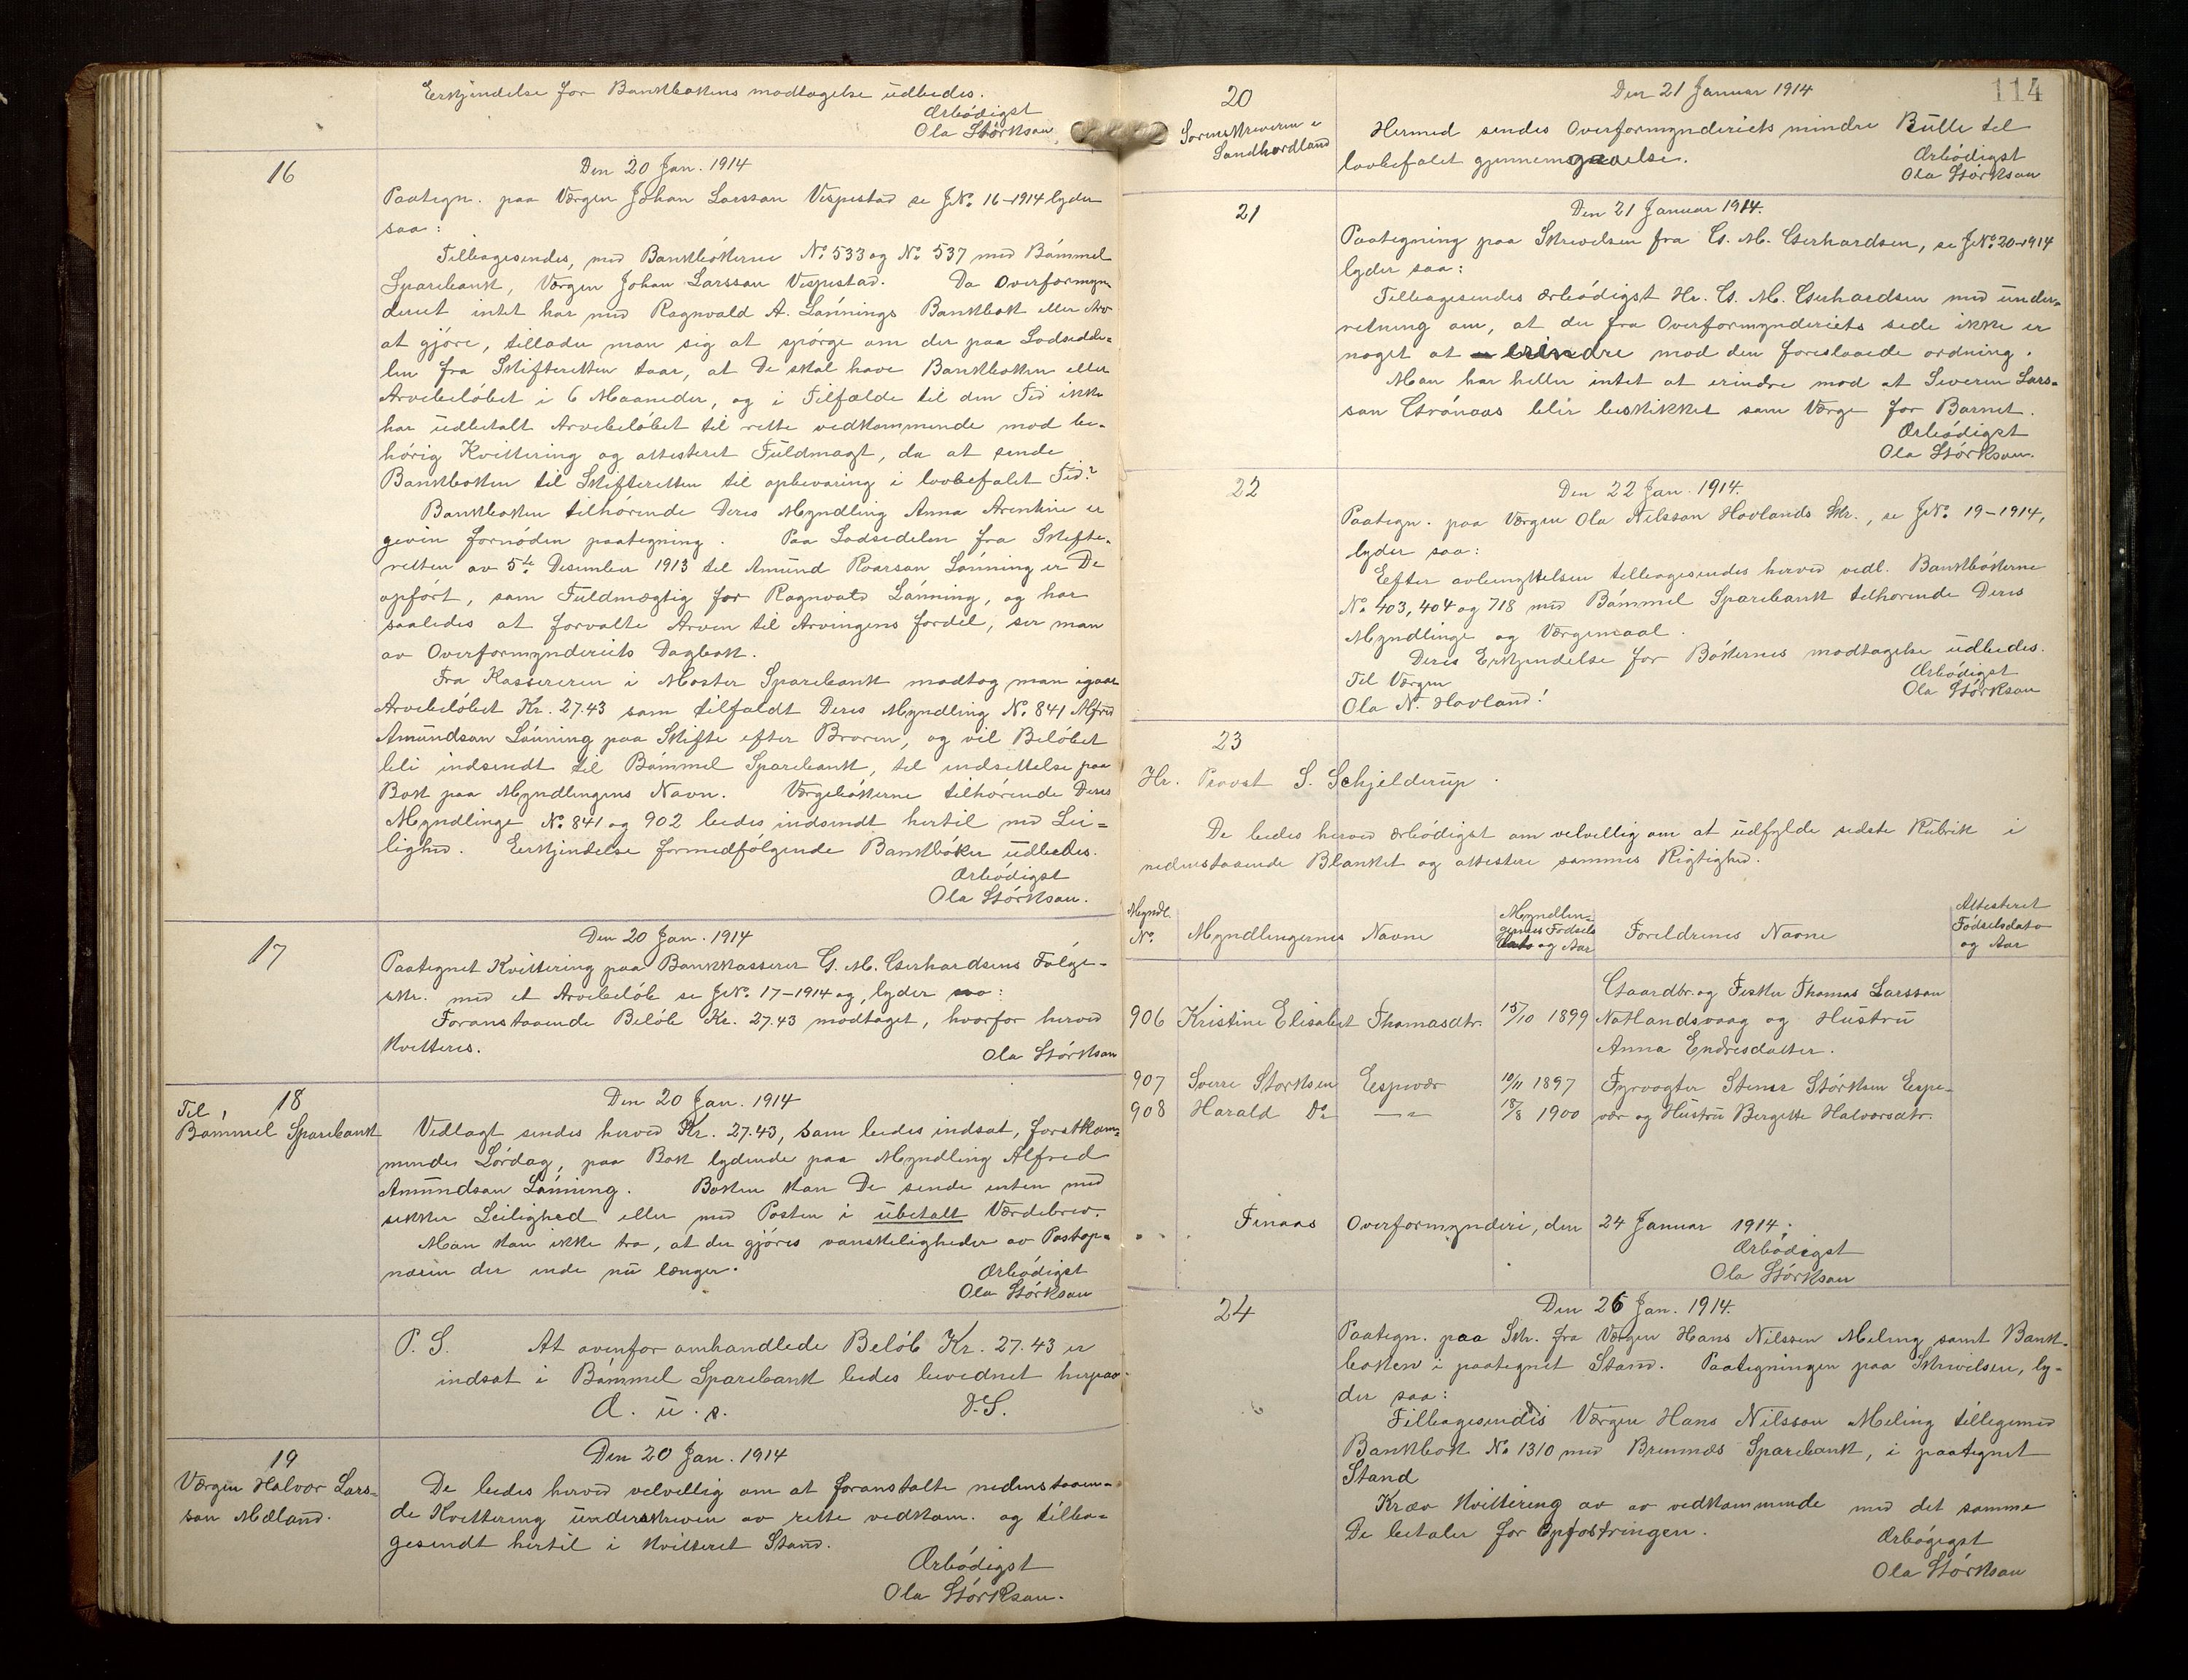 Erkjendelse for Bankbokens modtagelse udbedes.
Ærbödigst
Ola Störkson
16
Den 20 Jan. 1914
Paategn. paa Værgen Johan Larsson Vespestad se J№. 16-1914 lyder
saa:
Tilbagesendes, med Bankbökerne № 533 og № 537 med Bömmel
Sparebank, Værgen Johan Larsson Vespestad. Da Overformyn-
deriet intet har med Ragnvald A. Lönnings Bankbok eller Arv
at gjöre, tillader man sig at spörge om der paa Lodsedde-
len fra Skifteretten staar, at De skal have Bankboken eller
Arvebelöbet i 6 Maaneder, og i Tilfælde til den Tid ikke
har udbetalt Arvebelöbet til rette vedkommende mod be-
hörig Kvittering og attesteret Fuldmagt, da at sende
Bankboken til Skifteretten til opbevaring i lovbefalet Tid?
Bankboken tilhörende Deres Myndling Anna Arentine er
given fornöden paategning. Paa Lodsedelen fra Skifte-
retten av 5te Desember 1913 til Amund Roarson Lönning er De
opfört, som Fuldmægtig for Ragnvald Lönning, og har
saaledes at forvalte Arven til Arvingens fordel, ser man
av Overformynderiets Dagbok.
Fra Kassereren i Moster Sparebank modtog man igaar
Arvebelöbet Kr. 27.43 som tilfaldt Deres Myndling № 841 Alfred
Amundson Lönning paa Skifte efter Broren, og vil Belöbet
bli indsendt til Bömmel Sparebank, til indsettelse paa
Bok paa Myndlingens Navn. Værgebökerne tilhörende Deres
Myndlinge № 841 og 902 bedes indsendt hertil med Lei=
lighed. Erkjendelse for medfölgende Bankböker udbedes.
Ærbödigst
Ola Störkson.
17
Den 20 Jan. 1914
Paategnet Kvittering paa Bankkasserer G. M. Gerhardsens Fölge-
skr. med et Arvebelöb se J№. 17-1914 og, lyder saa:
Foranstaaende Belöb Kr. 27.43 modtaget, hvorfor herved
kvitteres.
Ola Störkson
18
Til
Bömmel Sparebank
Den 20 Jan. 1914
Vedlagt sendes herved Kr. 27.43, som bedes indsat, förstkom-
mende Lördag, paa Bok lydende paa Myndling Alfred
Amundson Lönning. Boken kan De sende enten med
sikker Leilighed eller med Posten i ubetalt Værdebrev.
Man kan ikke tro, at der gjöres vanskeligheder av Postop-
neren der inde nu længer.
Ærbödigst
Ola Störkson
P. S. At ovenfor omhandlede Belöb Kr. 27.43 er
indsat i Bömmel Sparebank bedes bevidnet herpaa.
D. u. s.
D.S.
19
Værgen Halvor Lars-
son Mæland.
Den 20 Jan. 1914
De bedes herved velvillig om at foranstalte nedenstaaen-
de Kvittering underskreven av rette vedkom. og tilba-
gesendt hertil i kvitteret Stand.
Ærbödigst
Ola Störkson.
114
20
Sorenskriveren i
Söndhordland
Den 21 Januar 1914
Hermed sendes Overformynderiets mindre Bülle til
lovbefalet gjennemgaaelse.
Ærbödigst
Ola Störkson
21
Den 21 Januar 1914.
Paategning paa Skrivelsen fra G. M. Gerhardsen, se J№. 20-1914
lyder saa:
Tilbagesendes ærbödigst Hr. G. M. Gerhardsen med under-
retning om, at der fra Overformynderiets side ikke er
noget at erindre mod den foreslaaede ordning.
Man har heller intet at erindre mod at Severin Lars-
son Grönaas blir beskikket som Værge for Barnet.
Ærbödigst
Ola Störkson.
22
Den 22 Jan. 1914.
Paategn. paa Værgen Ola Nilsson Hovlands Skr., se J№. 19-1914,
lyder saa:
Efter avbenyttelsen tilbagesendes herved vedl. Bankbökerne
№ 403, 404 og 718 med Bömmel Sparebank tilhörende Deres
Myndlinge og Værgemaal.
Deres Erkjendelse for Bökernes modtagelse udbedes.
Til Værgen
Ærbödigst
Ola N. Hovland!
Ola Störkson
23
Hr. Provst S. Schjelderup.
De bedes herved ærbödigst om velvillig om at udfylde sidste Rubrik i
nedenstaaende Blanket og attestere sammes Rigtighed.
Myndl. №. Myndlingernes Navne Myndlin- gernes Födsels Dato og Aar Foreldrenes Navne Attesteret Födselsdato og Aar
Gaardbr. og Fisker Thomas Larsson
906 Kristine Elisabet Thomasdtr. 15/10 1899 Notlandsvaag og Hustru
Anna Endresdatter.
907 Sverre Storksen Espevær 10/11 1897 Fyrvogter Stener Störksen Espe-
908 Harald Do —"— 18/8 1900 vær og Hustru Bergitte Halvorsdtr.
Finaas Overformynderi, den 24 Januar 1914.
Ærbödigst
Ola Störkson
24
Den 26 Jan. 1914.
Paategn. paa Skr. fra Værgen Hans Nilssen Meling samt Bank-
boken i paategnet Stand. Paategningen paa Skrivelsen, ly-
der saa:
Tilbagesendes Værgen Hans Nilsson Meling tilligemed
Bankbok № 1310 med Bremnes Sparebank, i paategnet
Stand
Kræv Kvittering av av vedkommende med det samme
De betaler for Opfostringen.
Ærbögigst
Ola Störkson